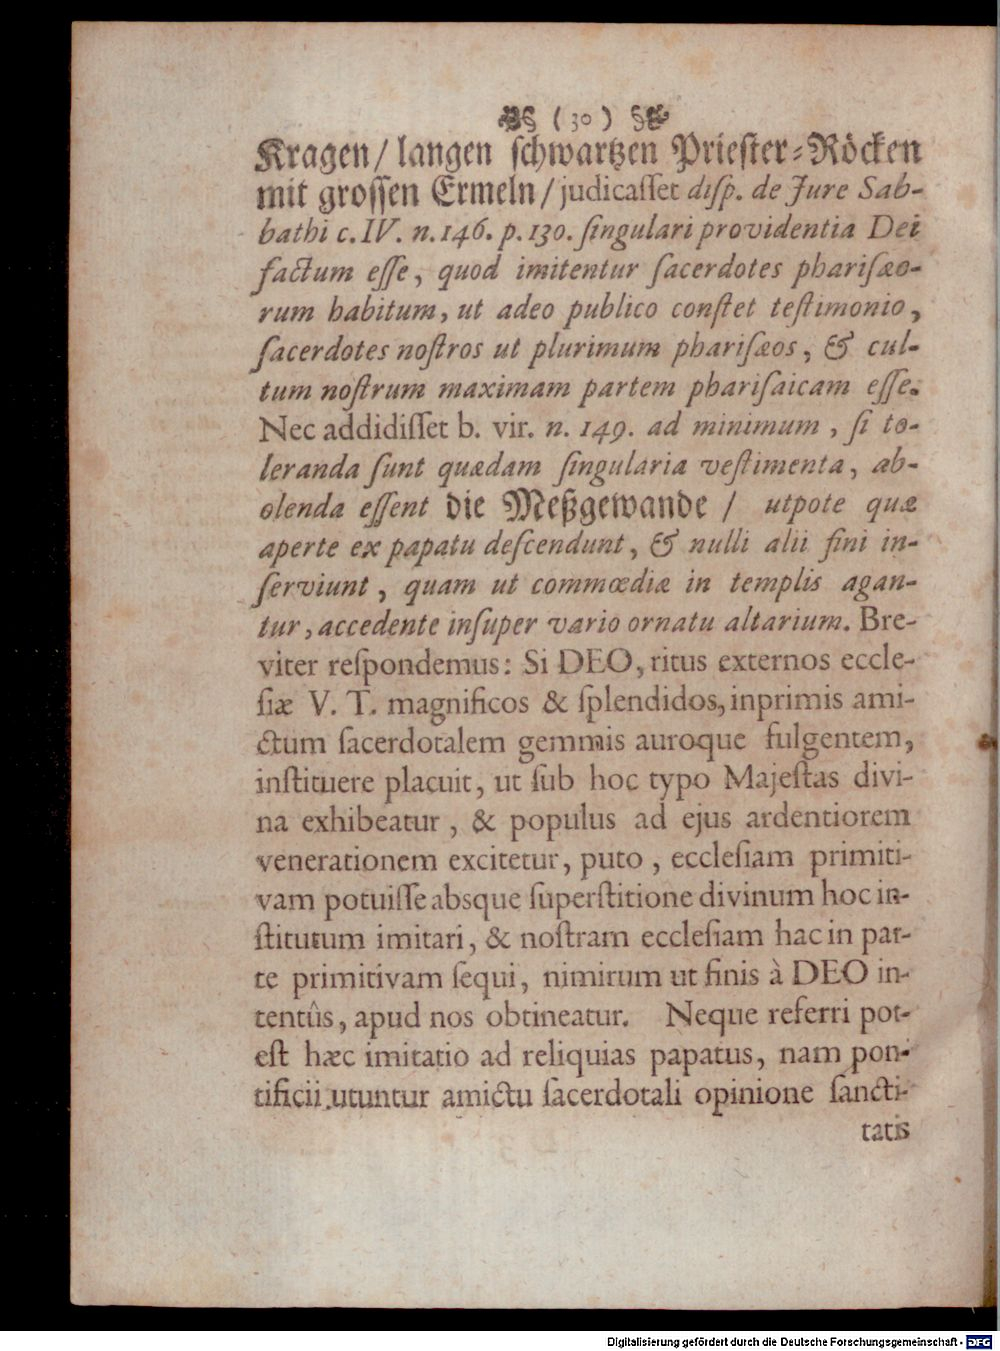 ( 30 )
Kragen/ langen ſchwartzen Prieſter-Röcken
mit groſſen Ermeln/ judicaſſet diſp. de Jure Sab-
bathi c. IV. n. 146. p. 130. ſingulari providentia Dei
factum eſſe, quod imitentur ſacerdotes phariſæo-
rum habitum, ut adeo publico conſtet teſtimonio,
ſacerdotes noſtros ut plurimum phariſæos, & cul-
tum noſtrum maximam partem phariſaicam eſſe.
Nec addidiſſet b. vir. n. 149. ad minimum, ſi to-
leranda ſunt quædam ſingularia veſtimenta, ab-
olenda eſſent die Meßgewande/ utpote quæ
aperte ex papatu deſcendunt, & nulli alii fini in-
ſerviunt, quam ut commœdiæ in templis agan-
tur, accedente inſuper vario ornatu altarium. Bre-
viter reſpondemus: Si DEO, ritus externos eccle-
ſiæ V. T. magnificos & ſplendidos, inprimis ami-
ctum ſacerdotalem gemmis auroque fulgentem,
inſtituere placuit, ut ſub hoc typo Majeſtas divi-
na exhibeatur, & populus ad ejus ardentiorem
venerationem excitetur, puto, eccleſiam primiti-
vam potuiſſe absque ſuperſtitione divinum hoc in-
ſtitutum imitari, & noſtram eccleſiam hac in par-
te primitivam ſequi, nimirum ut finis à DEO in-
tentûs, apud nos obtineatur. Neque referri pot-
eſt hæc imitatio ad reliquias papatus, nam pon-
tificii utuntur amictu ſacerdotali opinione ſancti-
tatis
Digitalisierung gefördert durch die Deutsche Forschungsgemeinschaft - DFG